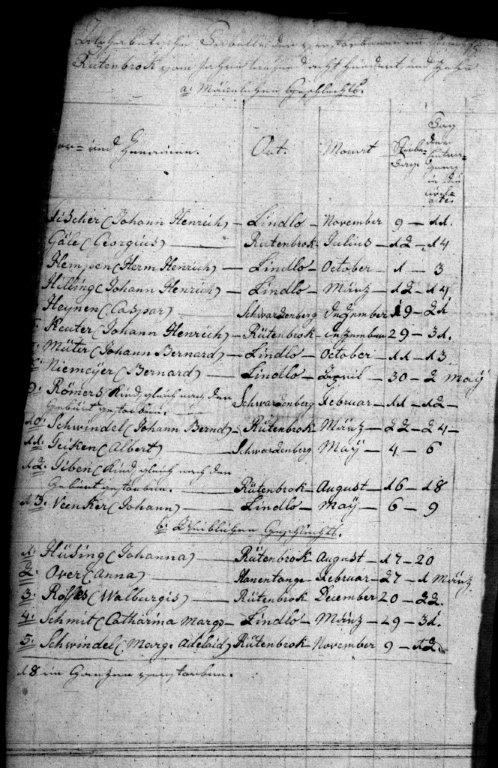 Alphabetische Tabelle der verstorbenen im
Rütenbrok vom Jahre Ein tausend acht hundert und Zehn
a: Männlichen Geschlechts.
und Zunamen. Ort. Monat Sterbe-Tag Tag der
Fischer (Johann Henrich) — Lindlo — November 9 — 11.
Gäle (Georgius) — Rütenbrok — Julius — 12 — 14
Hem̄sen (Herm Henrich) — Lindlo — October — 1 — 3
Hilling (Johann Henrich) — Lindlo — März — 12 — 14
Heijnen (Caspar) — Schwardenberg Dezember 19 — 21
Reuter (Johann Henrich) — Rütenbrok — Dezember 29 — 31.
Müter (Johann Bernard) — Lindlo — October — 11 — 13
Niemeÿer (Bernard) — Lindlo — April — 30 — 2 Maÿ
9: Römers Kind gleich nach der
Geburt gestorben. Schwardenberg Februar — 11 — 12 —
10. Schwindel (Johann Bernd) — Rütenbrok — März — 22 — 24 —
11: Geiken (Albert) — Schwardenberg Maÿ — 4 — 6
12: Siben (Kind gleich nach der
Geburt gestorben. — Rütenbrok — August — 16 — 18
13. Veenker (Johann) — Lindlo — Maÿ — 6 — 9
b: Weiblichen Geschlechts.
1: Hüsing (Johanna) — Rütenbrok August — 17 — 20
2: Over (Anna) — Hanentange Februar — 27 — 1 März
3: Rolfes (Walburgis) — Rütenbrok December 20 — 22.
4: Schmit (Catharina Marg. — Lindlo — März — 29 — 31.
5: Schwindel (Marg. Adelaid) Rütenbrok — November 9 — 12.
18 im Ganzen verstorben.